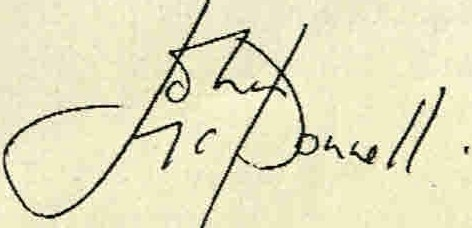 John
McDonnell.